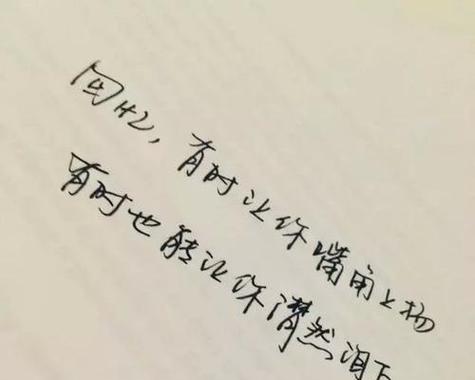 回忆，有时让你嘴角上扬
有时也能让你潸然泪下